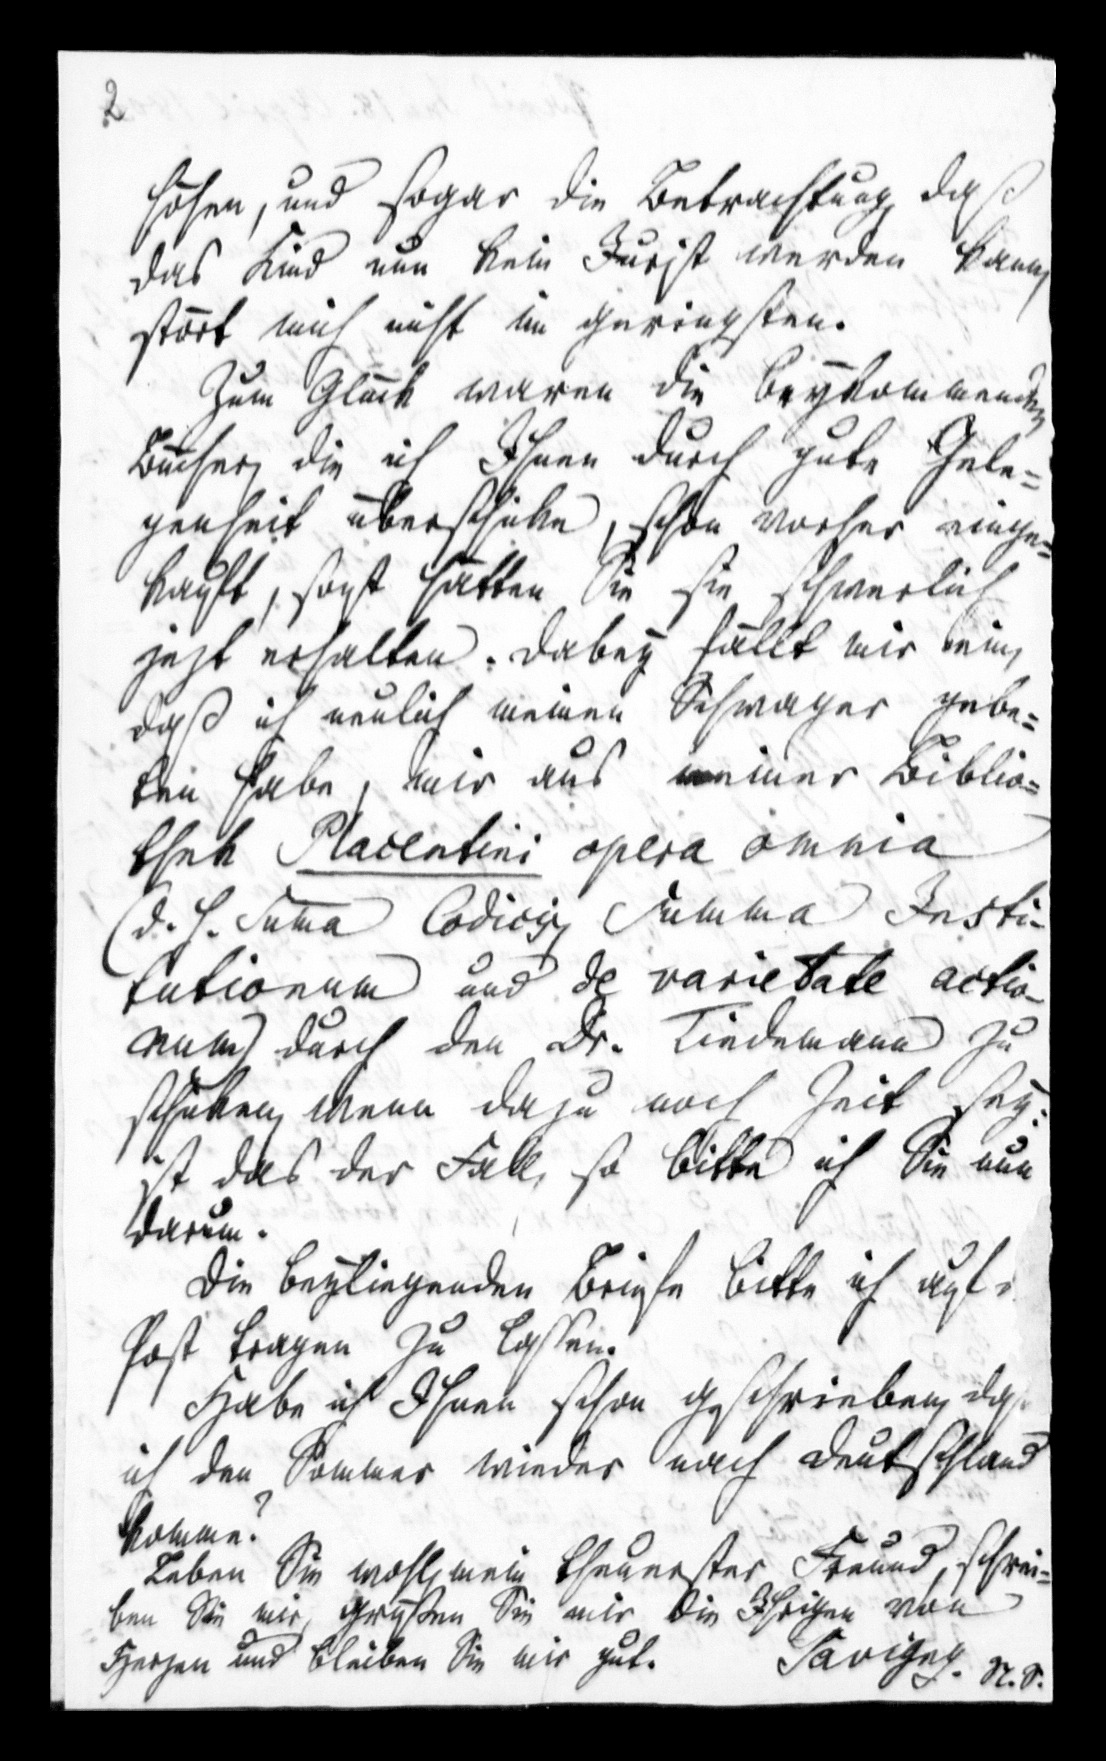 2
höhen, und sogar die Betrachtung, daß
das Kind nun kein Jurist werden kann,
stört mich nicht im geringsten.
Zum Glück waren die beykommenden
Bücher, die ich Ihnen durch gute Gele=
genheit überschicke, schon vorher einge=
kauft, sonst hätten Sie sie schwerlich
jezt erhalten. Dabey fällt mir ein,
daß ich neulich meinen Schwager gebe=
ten habe, mir aus meiner Biblio=
thek Placentini opera omnia
(d. h. Suma Codicis, Summa Insti-
tutionum und de varietate actio-
num) durch den Dr. Tiedemann zu
schicken, wenn dazu noch Zeit sey:
ist das der Fall, so bitte ich Sie nun
darum.
Die beyliegenden Briefe bitte ich auf
Post tragen zu lassen.
Habe ich Ihnen schon geschrieben, daß
ich den Sommer wieder nach Deutschland
komme?
Leben Sie wohl, mein theuerster Freund, schrei=
ben Sie mir, grüßen Sie mir die Ihrigen von
Herzen und bleiben Sie mir gut. Savigny. N. S.